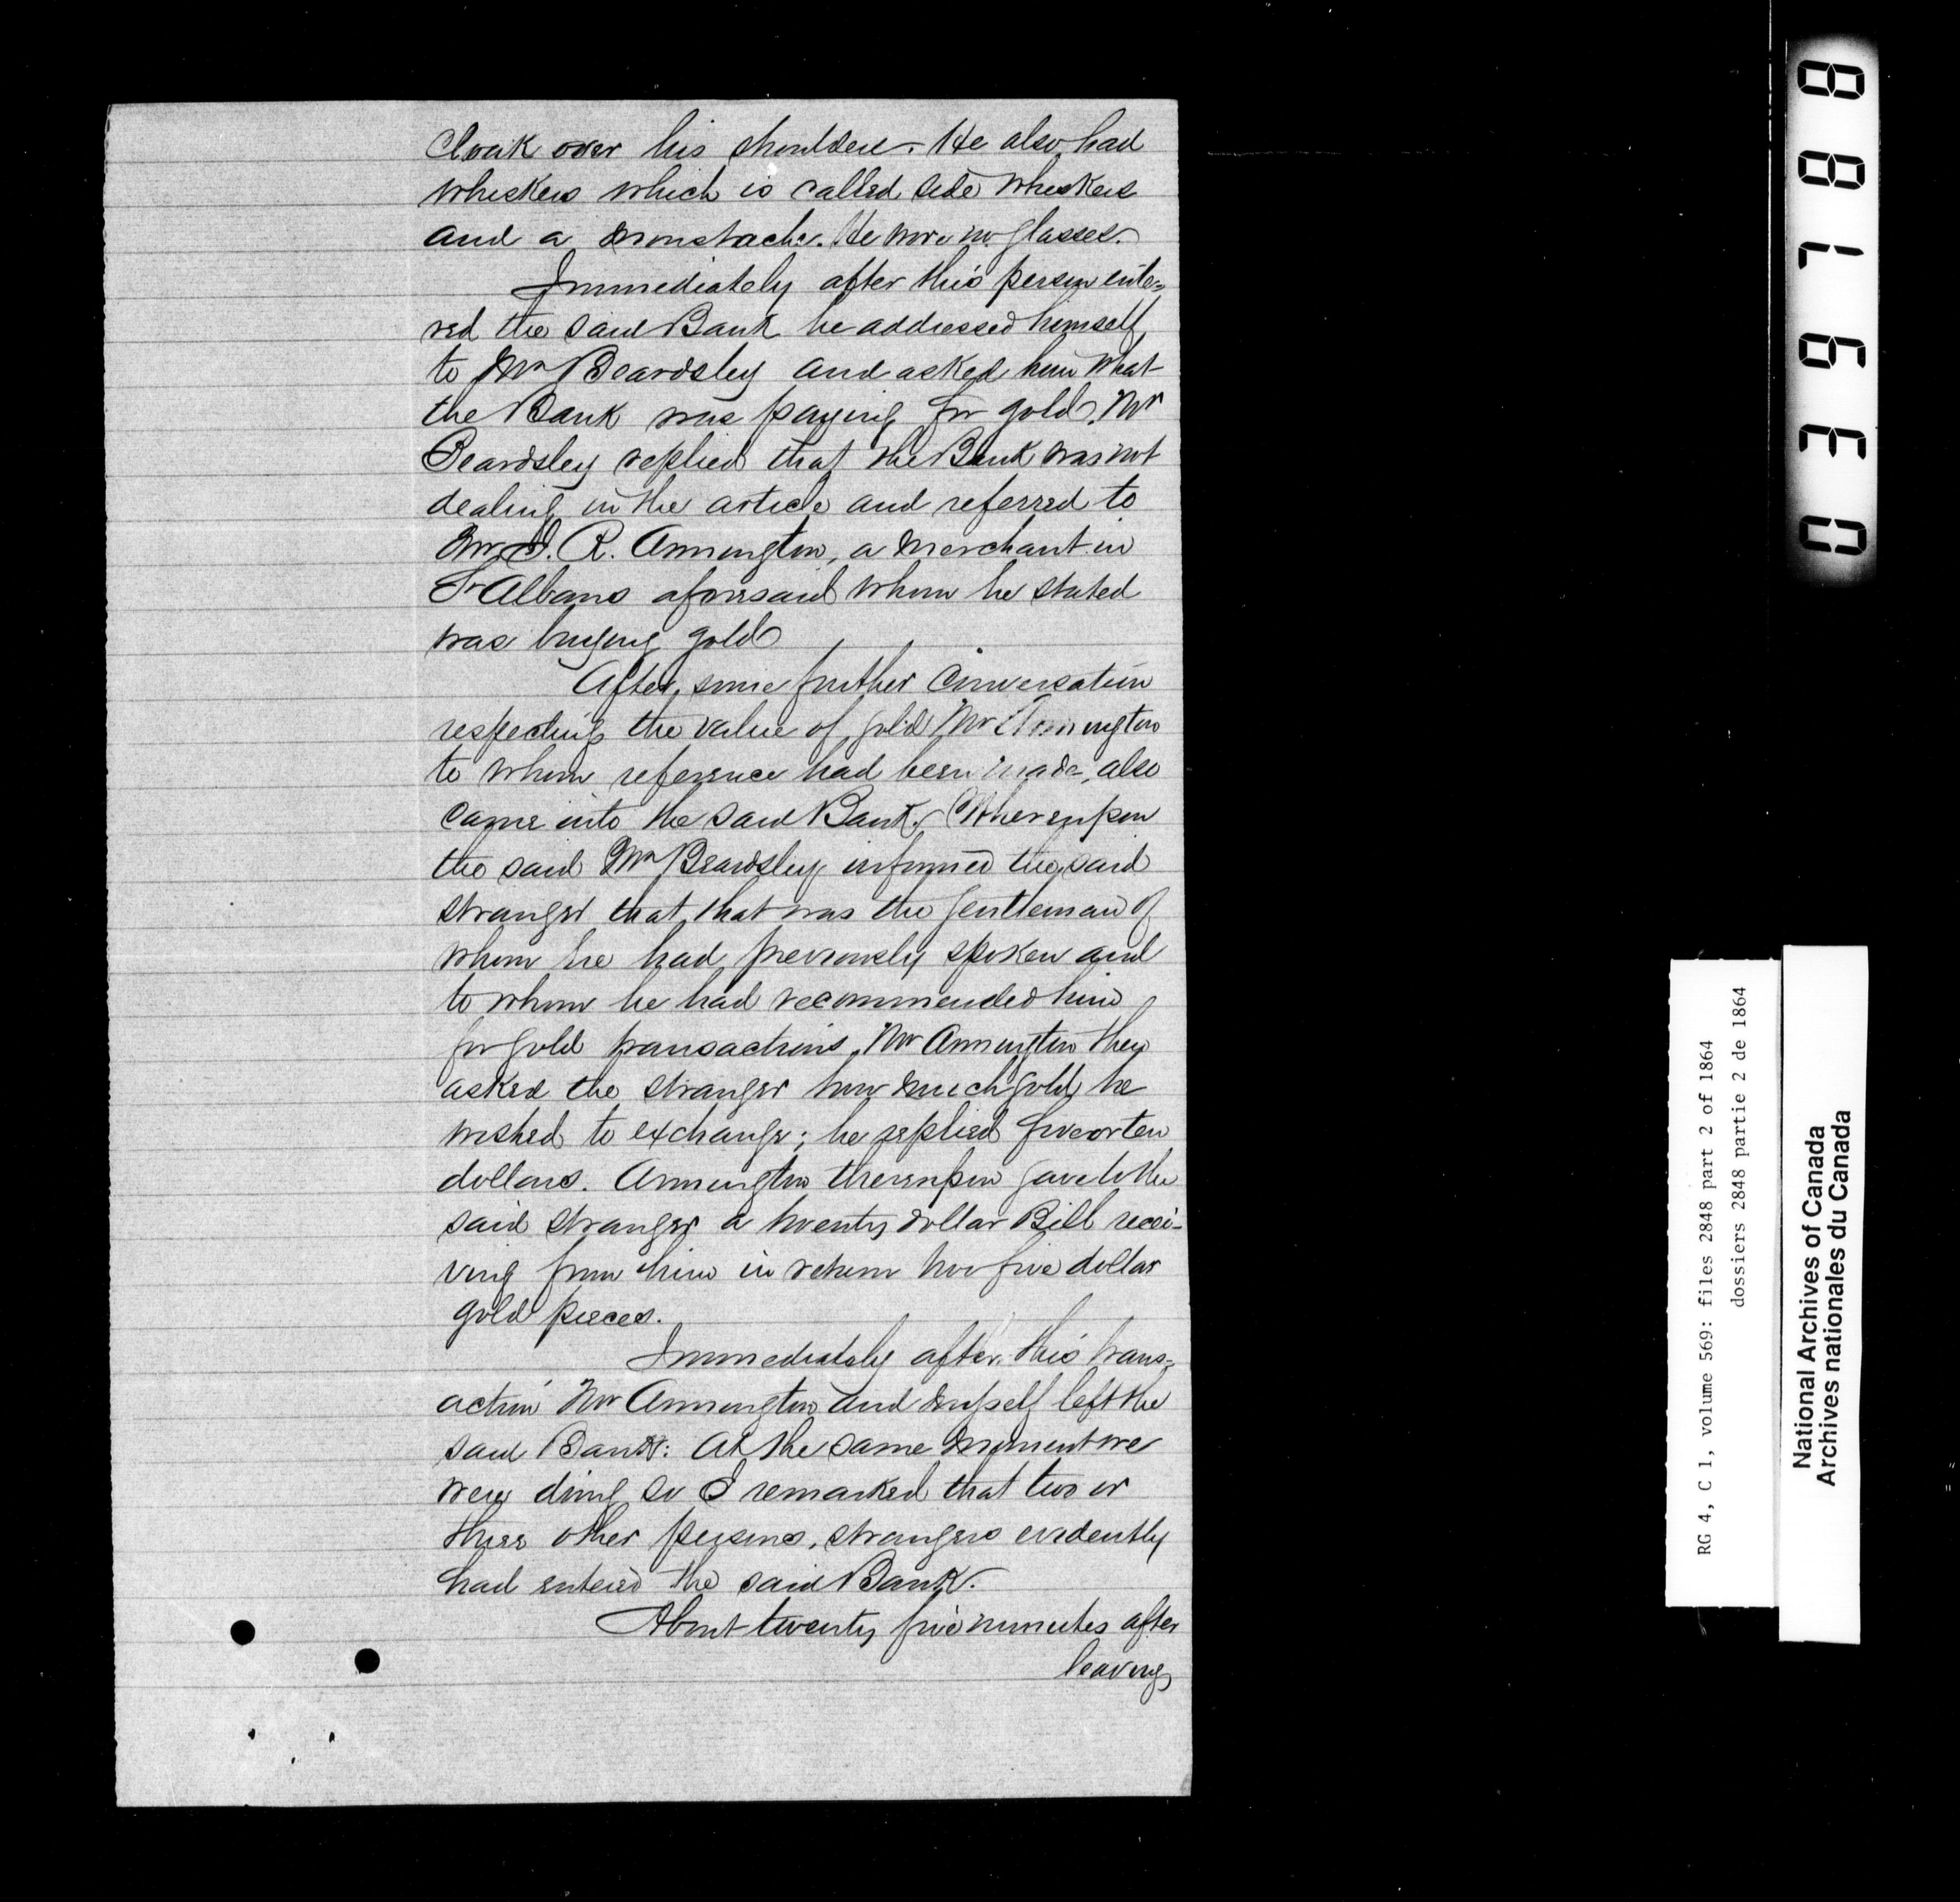 cloak over his shoulders. He also had
whiskers which is called side whiskers
and a moustache. He wore no glasses.
Immediately after this person ente=
red the said Bank he addressed himself
to Mr Beardsley and asked him what
the Bank was paying for gold. Mr
Beardsley replied that the Bank was not
dealing in the article and referred to
Mr J. R. Armington, a merchant in
St Albans aforesaid whom he stated
was buying gold
After some further conversation
respecting the value of gold Mr Armington
to whom reference had been made, also
came into the said Bank. Whereupon
the said Mr Beardsley informed the said
stranger that that was the gentleman of
whom he had previously spoken and
to whom he had recommended him
for gold transactions. Mr Armington then
asked the stranger how much gold he
wished to exchange; he replied five or ten
dollars. Armington thereupon gave to the
said stranger a twenty dollar Bill recei-
ving from him in return two five dollar
gold pieces.
Immediately after this trans=
action Mr Armington and myself left the
said Bank: At the same moment we
were doing so I remarked that two or
three other persons, strangers evidently
had entered the said Bank.
About twenty five minutes after
leaving
RG 4, C 1, volume 569: files 2848 part 2 of 1864
dossiers 2848 partie 2 de 1864
National Archives of Canada
Archives nationales du Canada